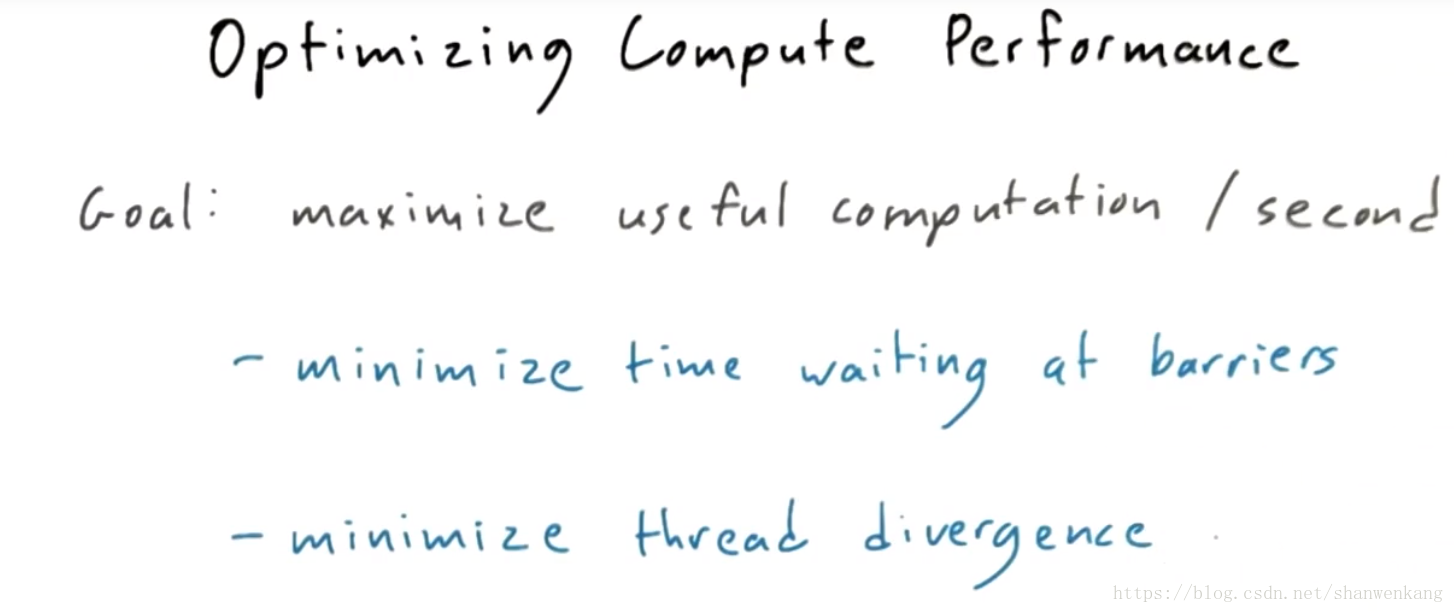 Optimizing Compute Performance
Goal: maximize useful computation / second
- minimize time waiting at barriers
- minimize thread divergence
https://blog.csdn.net/shanwenkang